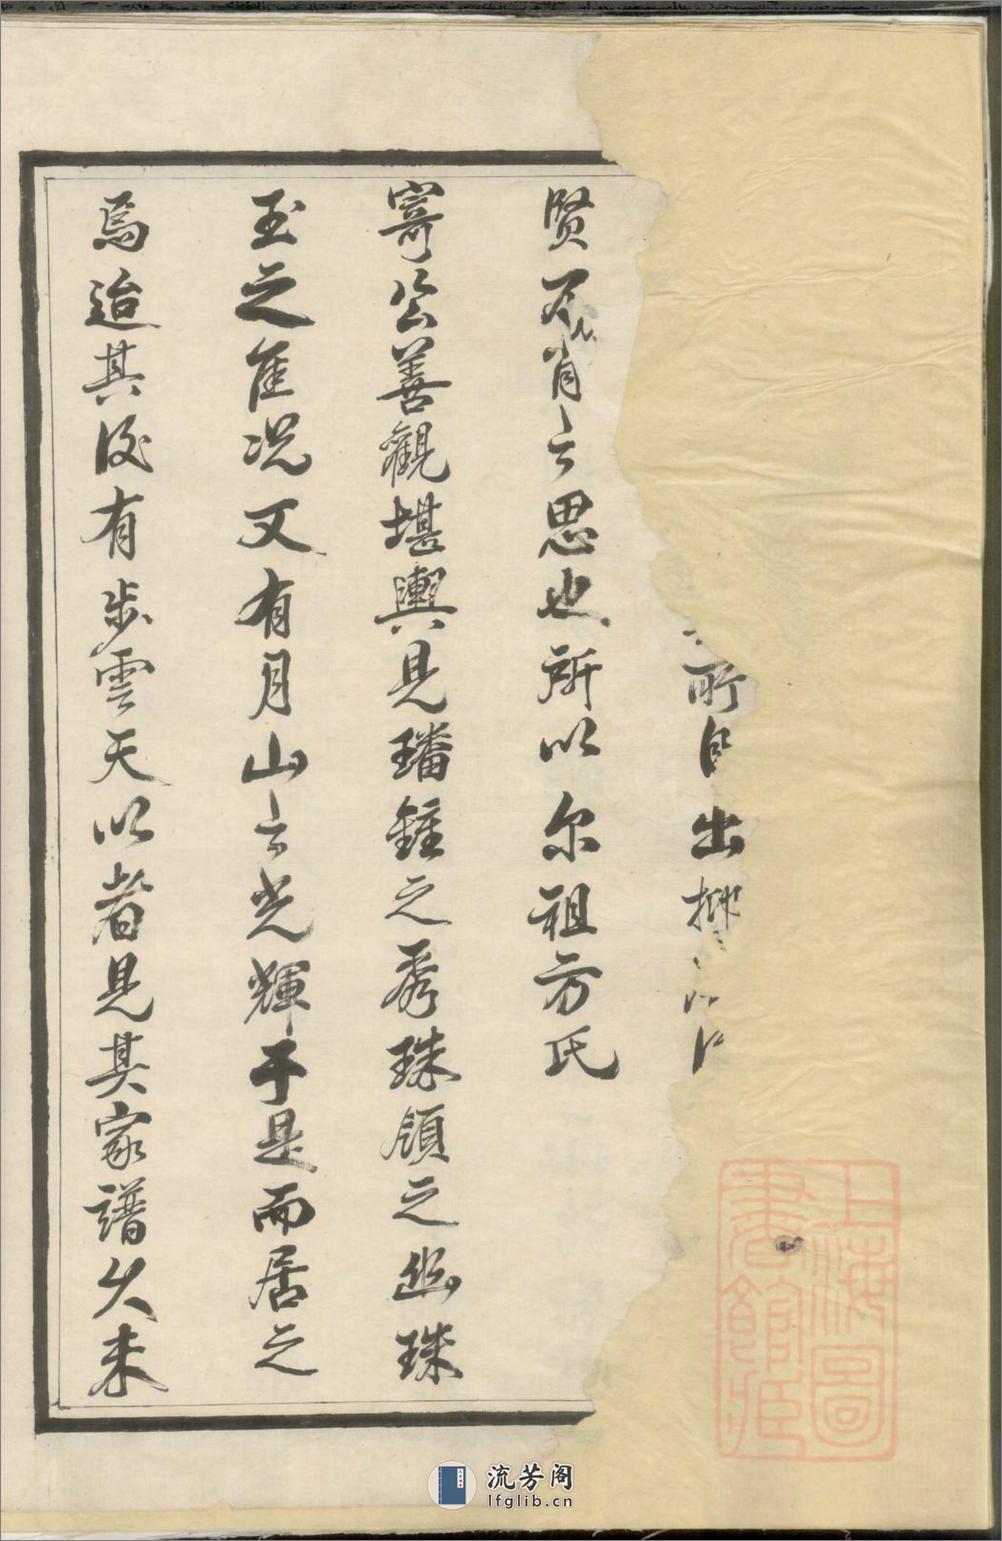 所自出
賢不肖之思也所以尔祖方氏
寄公善觀堪輿見璠鍾之秀珠領之幽珠
玉之隹況又有月山之光輝于是而居之
焉迨其後有步雲天以者見其家譜久未
上海圖
書館藏
流芳阁
lfglib.cn